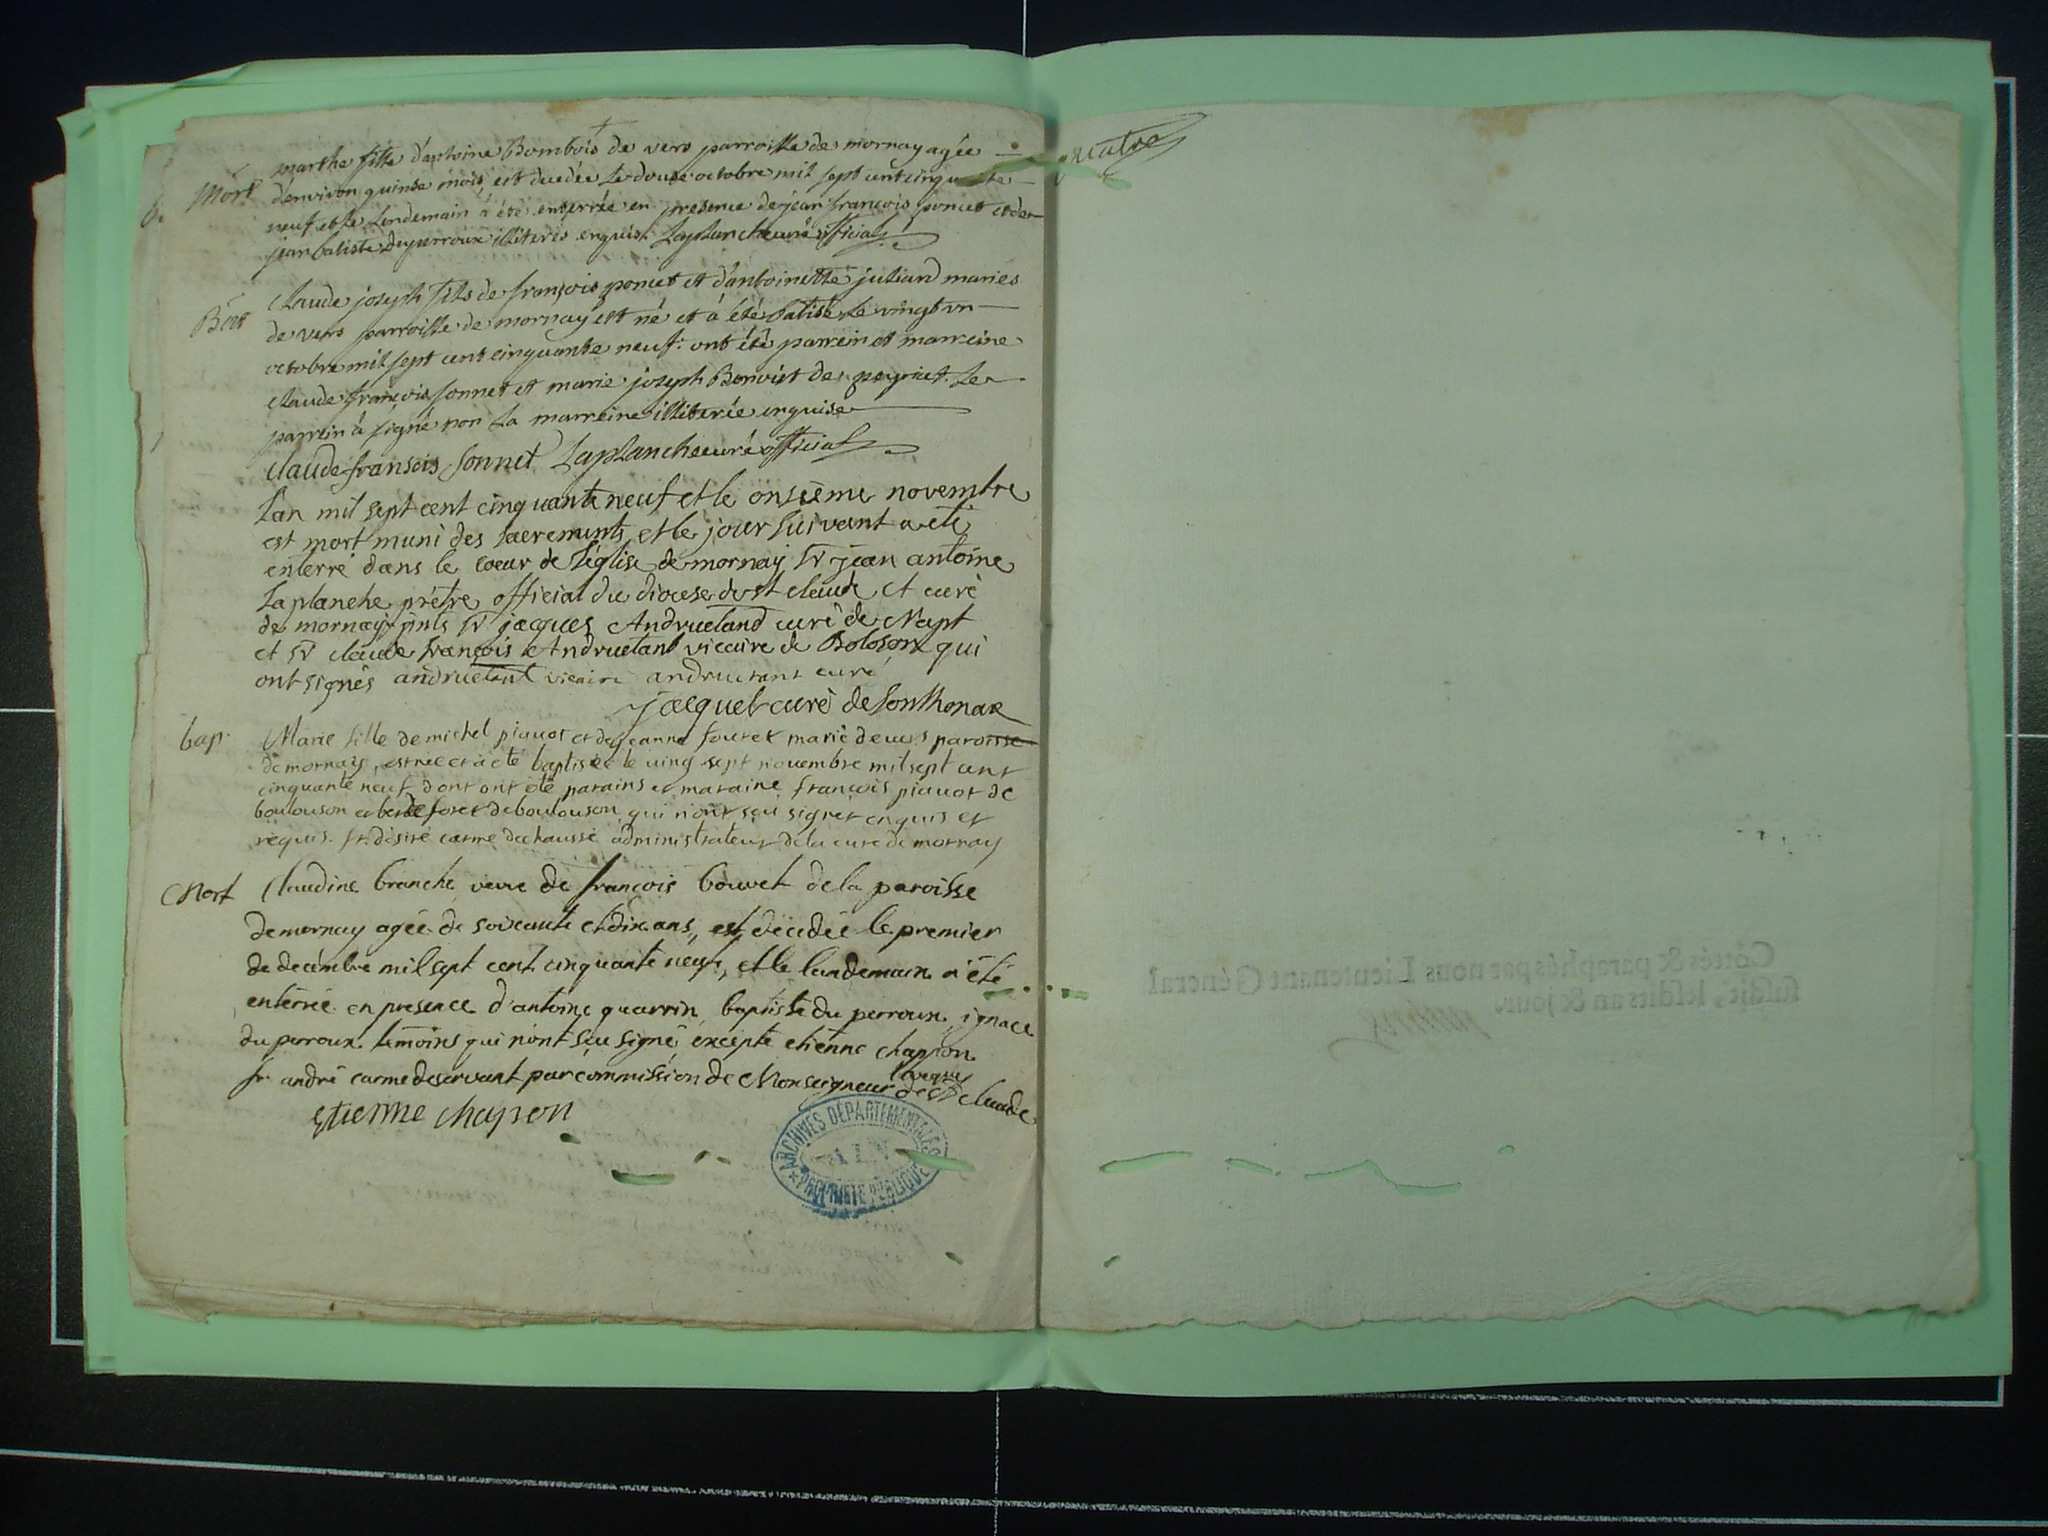 Mort marthe fille d'antoine Bombois de vers parroisse de mornay agée
d'environ quinse mois, est decedée le douse octobre mil sept cent cinquante
neuf et le lendemain à été enterrée en presence de jean françois poncet et de
jean batiste Duperroux illiterés enquis. Laplanche curé official
Bém Claude joseph fils de françois poncet et d'antoinette juliand mariés
de vers parroisse de mornay est né et à été batisé le vingt un
octobre mil sept cent cinquante neuf: ont été parrein et marreine
claude françois sonnet et marie joseph Bonvist de peyriat. Le
parrein à signé non la marreine illiterée enquise
claude fransois sonnet Laplanche curé official
L'an mil sept cent cinquante neuf et le onsième novembre
est mort muni des sacrements et le jour suivant a été
enterré dans le coeur de l'église de mornay Sr jean antoine
Laplanche prêtre official du diocese de st claude et curé
de mornay pnts Sr jacques Andruetand curé de Napt
et Sr claude françois Andruetant viccaire de Bolozon qui
ont signés andruetant vicaire andruetant curé
jacquet curé de Sonthonax
bap. Marie fille de michel piquot et de jeanne fouret marié de vers paroisse
de mornay, est née et à été baptisée le ving sept novembre mil sept cent
cinquante neuf dont ont été parains et maraine françois piquot de
boulouson et foret de boulouson qui n'ont sçu signer enquis et
requis. fr. désiré carme dechaussé administrateur de la cure de mornay
Mort Claudine branche veuve de françois bouvet de la paroisse
de mornay agée de soixante et dix ans, est décidée le premier
de decembre mil sept cent cinquante neuf, et le landemain a été
enterrée en presence d'antoine quarrin baptiste du perroux, ignace
du perroux temoins qui n'ont sçu signé, excepté etienne chapon
fr. andré carme deservant par commission de Monseigneur l'eveque de St claude
Etienne chapon
ARCHIVES DÉPARTEMENTALES
AIN
PROPRIÉTÉ PUBLIQUE
quatre
Cottés & paraphés par nous Lieutenant Général
susdit, lesdits an & jour.